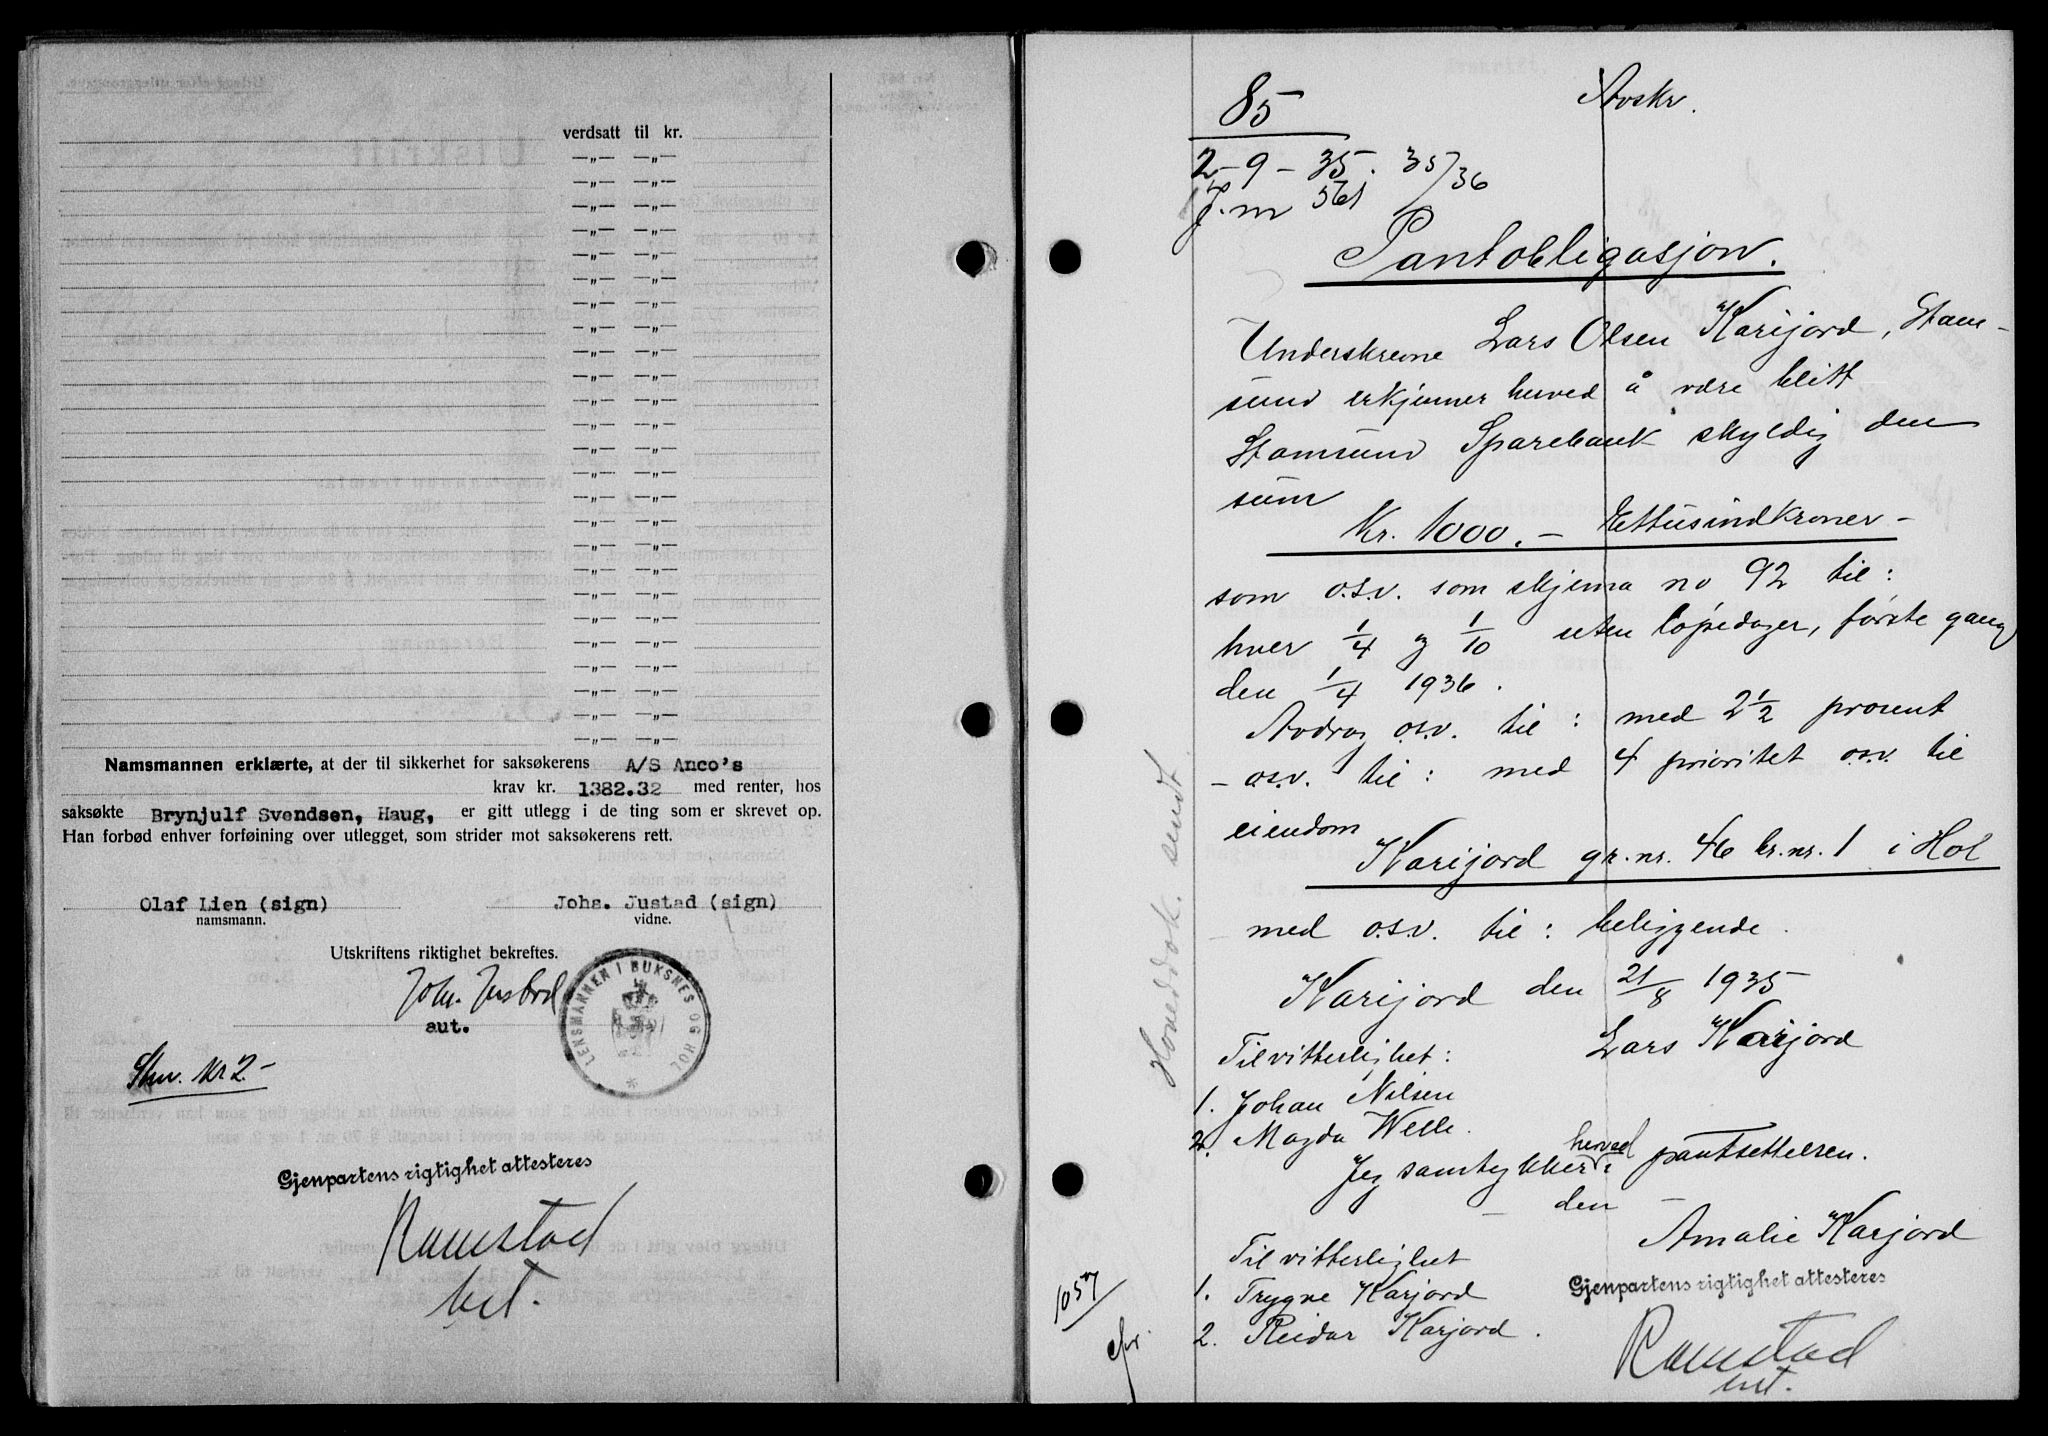 verdsatt til kr.
—„— —„—
—„— —„—
—„— —„—
—„— —„—
—„— —„—
—„— —„—
—„— —„—
—„— —„—
—„— —„—
—„— —„—
—„— —„—
—„— —„—
—„— —„—
—„— —„—
—„— —„—
—„— —„—
—„— —„—
—„— —„—
—„— —„—
—„— —„—
—„— —„—
—„— —„—
—„— —„—
—„— —„—
—„— —„—
Namsmannen erklærte, at der til sikkerhet for saksøkerens A/S Anco's
krav kr. 1382.32 med renter, hos
saksøkte Brynjulf Svendsen, Haug, er gitt utlegg i de ting som er skrevet op.
Han forbød enhver forføining over utlegget, som strider mot saksøkerens rett.
Olaf Lien (sign) Johs. Justad (sign)
namsmann. vidne.
Utskriftens riktighet bekreftes.
Joh. Justad
aut.
LENSMANNEN I BUKSNES OG HOL
Stm. Kr 2.-
Gjenpartens rigtighet attesteres
Ramstad
bet.
85 Avskr.
2-9-35. 35/36
J.nr 561
Pantobligasjon.
Underskrevne Lars Olsen Karijord, Stam-
sund erkjenner herved å være blitt
Stamsund Sparebank skyldig den
sum
Kr. 1000.- Ettusindkroner-
som o.s.v. som skjema no 92 til:
hver 1/4 og 1/10 uten løpedager, første gang
den 1/4 1936.
Avdrag o.s.v. til: med 2 1/2 prosent
- o.s.v. til: med 4 prioritet o.s.v. til
eiendom
Karijord gr.nr. 46 br.nr. 1 i Hol
med o.s.v. til: beliggende.
Karijord den 21/8 1935
Lars Karijord
Tilvitterlighet:
1. Johan Nilsen
2. Magda Welle.
Jeg samtykker herved i pantsettelsen.
- den -
Amalie Karjord
Tilvitterlighet
1. Trygve Karjord
2. Reidar Karjord.
Gjenpartens rigtighet attesteres
Ramstad
bet.
Hoveddok. sendt.
1057